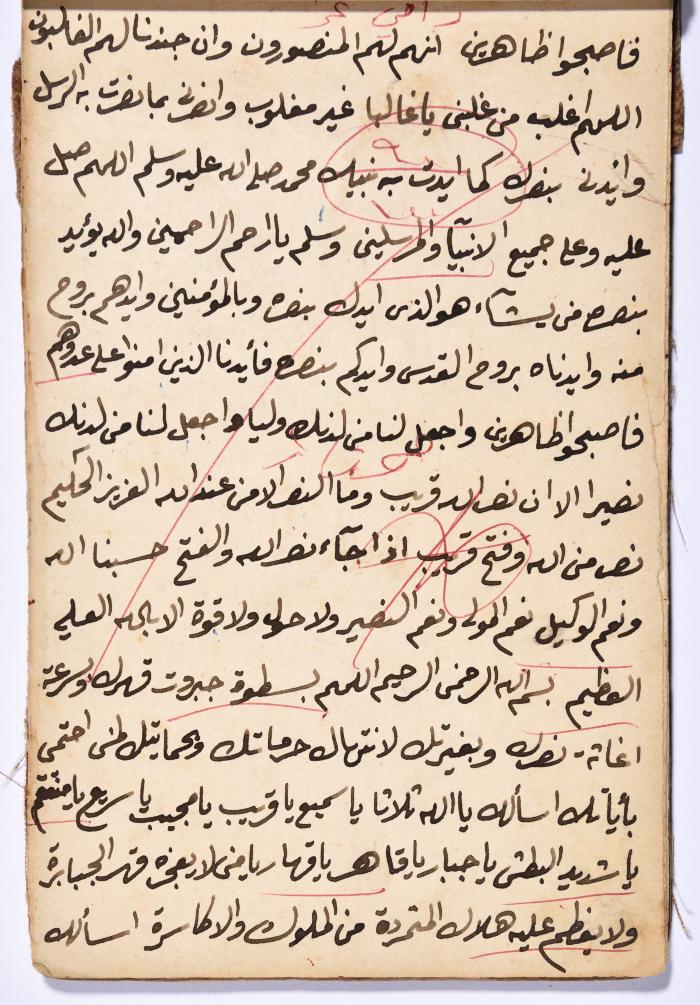 فاصبحوا ظاهرين انهم لهم المنصورون وان جندنا لهم الغالبون
اللهم اغلب من غلبني يا غالبا غير مغلوب وانصرني بما نصرت به الرسل
وايدني بنصرك كما ايدت به نبيك محمد صلى الله عليه وسلم اللهم صل
عليه وعلى جميع الانبيآ والمرسلين وسلم يا ارحم الراحمين والله يؤيد
بنصره من يشآء هو الذى ايدك بنصره وبالمؤمنين وايدهم بروح
منه وايدناه بروح القدس وايدكم بنصره فأيدنا الذين امنوا على عدوهم
فاصبحوا ظاهرين واجعل لنا من لدنك وليا واجعل لنا من لدنك
نصيرا الا ان نصر الله قريب وما النصر الا من عند الله العزيز الحكيم
نصر من الله وفتح قريب اذا جآء نصر الله والفتح حسبنا الله
ونعم الوكيل نعم المولى ونعم النصير ولا حول ولا قوة الا بالله العلي
العظيم بسم الله الرحمن الرحيم اللهم بسطوة جبروت قهرك وبسرعة
اغاثة نصرك وبغيرتك لانتهاك حرماتك وبحمايتك لمن احتمى
بأياتك اسألك يا الله ثلاثا يا سميع يا قريب يا مجيب يا سريع يا منتقم
يا شديد البطش يا جبار يا قاهر يا قهار يا من لا يعجزه قهر الجبابرة
ولا يعظم عليه هلاك المتمردة من الملوك والاكاسرة اسألك